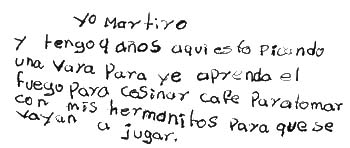 yo Martiro
y tengo 9 años aqui esto Picando
una Vara Para ye aprenda el
fuego Para cosinar cafe Paratomar
con mis hermanitos Para que se
vayan a jugar.